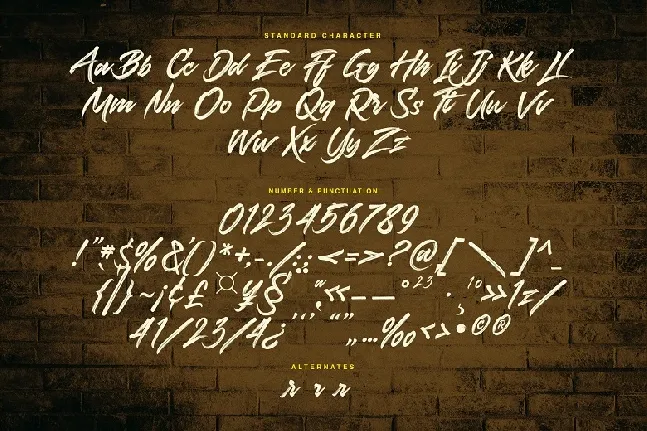 STANDARD CHARACTER
Aa Bb Cc Dd Ee Ff Gg Hh Ii Jj Kk Ll
Mm Nn Oo Pp Qq Rr Ss Tt Uu Vv
Ww Xx Yy Zz
NUMBER & PUNCTUATION
0123456789
!"#$%&'()*+,-./:;<=>?@[\]^_
{|}~¡¢£¤¥§¨,«——°23´·¸10»1⁄
41/23/4¿‘’‚“”„…‰‹›•©®
ALTERNATES
r v r